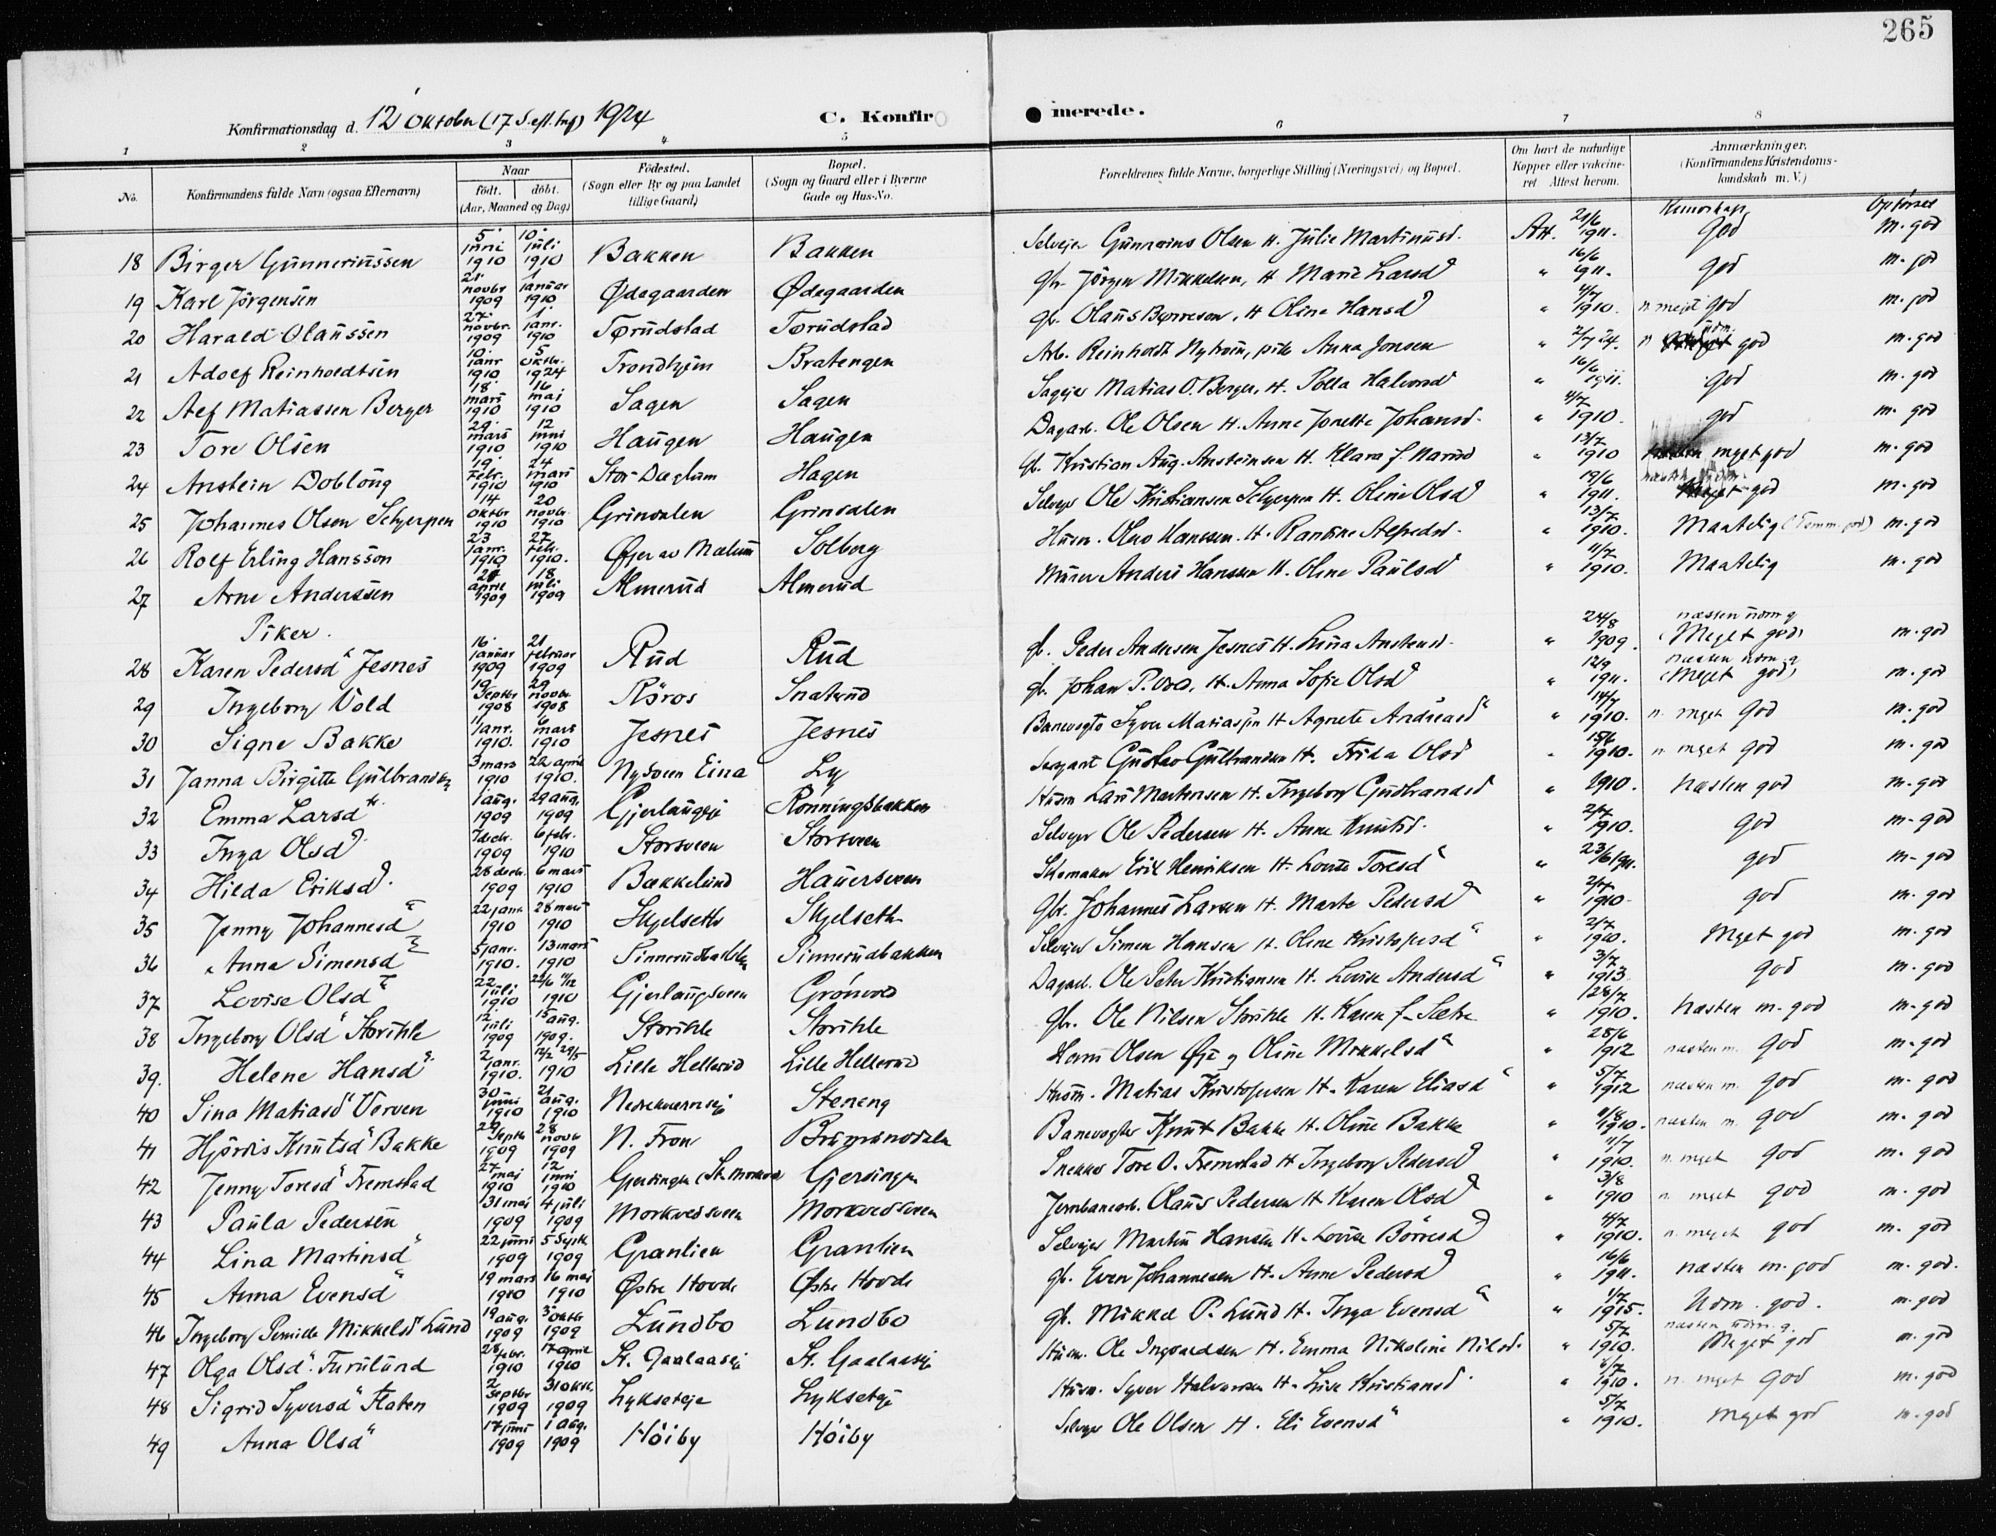 265
Konfirmationsdag d. 12 Oktober (17 S. eft. tref) 1924 C. Konfir merede.
1 2 3 4 5 6 7 8
No. Konfirmandens fulde Navn (ogsaa Efternavn) Naar født. døbt. (Aar, Maaned og Dag) Fødested. (Sogn eller By og paa Landet tillige Gaard) Bopæl. (Sogn og Gaard eller i Byerne Gade og Hus-No. Forældrenes fulde Navne, borgerlige Stilling (Næringsvei) og Bopæl. Om havt de naturlige Kopper eller vakcineret Attest herom. Anmærkninger. (Konfirmandens Kristendomskundskab m. V.)
Kundskap Opførsel
18 Birger Gunneriussen 5 juni 1910 10 juli 1910 Bakken Bakken Selveier Gunnerius Olsen H. Julie Martinusd. Att. 21/6 1911. God m. god
19 Karl Jørgensen 21 novbr 1909 1 januar 1910 Ødegaarden Ødegaarden gbr. Jörgen Mikkelsen, H Marie Larsd " 16/6 1911. god m. god
20 Harald Olaussen 27. novbr. 1909 1 janr. 1910 Torudstad Torudstad gb. Olaus , H Oline Hansd " 4/7 1910. n meget god m. god
21 Adolf Reinholdtsen 10. janr 1910 5 oktbr. 1924 Trondhjem Bratengen Arb. Reinholdt Nystrøm, pike Anna Jonsen " 2/7 24. n god m. god
22 Alf Matiassen Berger 18 mars 1910 16 mai 1910 Sagen Sagen Sageier Matias O. Berger, H. Polla Halvorsd " 16/6 1911. god m. god
23 Tore Olsen 29. mars 1910 12 juni 1910 Haugen Haugen Dagarb. Ole Olsen H. Anne Jonette Johansd. " 4/7 1910. god m. god
24 Anstein Doblong 19. febr. 1910 24 mars 1910 Stor-Daglum Hagen gb. Kristian Aug. Ansteinsen H. Klara f. Narud " 13/7 1910 meget god m. god
25 Johannes Olsen Schjerpen 14 oktbr 1910 20 novbr. 1910 Grindalen Grindalen Selveier Ole Kristiansen Schjerpen H. Oline Olsd " 19/6 1911. næsten god m. god
26 Rolf Erling Hansson 23 janr. 1910 27 febr. 1910. Øier av Mælum Solberg Husm. Hanssen. H. Alfredsd. " 13/7 1910. Maatelig (Temm. god) m. god
27 Arne Anderssen april 1909 18 juli 1909 Almerud Almerud Murer Anders Hanssen H. Oline Paulsd " 4/7 1910. Maatelig m. god
Piker.
28 Karen Pedersd" Jesnes 16 januar 1909 21 februar 1909 Rud Rud gb. Peder Andersen Jesnes H. Lina Anstensd. " 24/8 1909. næsten udm. g (Meget god) m. god
29 Ingeborg Vold 19 Septbr 1908 29 novbr. 1908 Röros Snaterud gb. Johan P. Vold, H. Anna Sofie Olsd " 12/9 1911. næsten udm. g (Meget god) m. god
30 Signe Bakke 11 janr. 1910. 6 mars 1910 Jesnes Jesnes Banevogter Syver Matiassen H Agnete Andreasd" " 14/7 1910. n. meget god m. god
31 Janna Birgitte Gulbrandsen 3 mars 1910 22 april 1910. Nysveen Eina Ly Sergeant Gustav Gulbrandsen H. Frida Olsd " 15/6 1910. n. meget god m. god
32 Emma Larsdtr. 1 aug. 1909 29 aug. 1909 Gjerlaugeie Rønningsbakken Husm Lars Martinsen H. Ingeborg Gudbrandsd " 1910. Næsten god m. god
33 Inga Olsd. 7 decbr. 1909 6 febr. 1910 Storsveen Storsveen Selveier Ole Pedersen H. Anne Knutsd. " 2/7 1910. god m. god
34 Hilda Eriksd. 28 decbr. 1909 6 mars 1910 Bækkelund Hauersveen Skomaker Erik Henriksen H. Lovise Toresd" " 23/6 1911. god m. god
35 Jenny Johannesd" 22 janr 1910 28 mars 1910 Skjelseth Skjelseth gbr. Johannes Larsen H. Marte Pedersd " 2/7 1910. god m. god
36 Anna Simensd" 5 janr. 1910. 13 mars 1910 Pinnerudbakken Pinnerudbakken Selveier Simen Hansen H. Oline Kristofersd" " 2/7 1910. Meget god m. god
37 Lovise Olsd" 22 juli 1910 1910 Gjerlaugsveen Grönvold Dagarb. Ole Peter Kristiansen H. Lovise Andersd" " 3/7 1913. god m. god
38 Ingeborg Olsd" Storihle 12. juli 1909 15 aug. 1909. Storihle Storihle gbr. Ole Nilsen Storihle H. Karen f. Sætre " 28/7 1910. Næsten m. god m. god
39. Helene Hansd". 2 janr. 1910. 29/5 1910 Lille Hellerud Lille Hellerud Hans Olsen Øie og Oline Mikkelsd" " 28/6 1912 næsten m. god m. god
40 Sina Matiasd" Verven 30 juni 1910 21 aug. 1910 Nerekverneie Steneng Husm. Matias Kristofersen H. Karen Eliasd" " 5/7 1912 næsten m. god m. god
41 Hjördis Knutsd" Bakke 29 Septbr 1909 28 novbr 1909 N. Fron Banevogter Knut Bakke H. Oline Bakke " 1/8 1910. næsten m. god m. god
42 Jenny Toresd" Fremstad 27 mai 1910 12 juni 1910 Gjersingen (St. Morkved Gjersingen Snekker Tore O. Fremstad H Ingeborg Pedersd " 1/7 1910. n. meget god m. god
43 Paula Pedersen 31 mai 1909 4 juli 1909 Morkvedsveen Morkvedsveen Jernbanearb. Olaus Pedersen H Karen Olsd " 3/8 1910 n. meget god m. god
44 Lina Martinsd" 22 juni 1909 5 Septbr. 1909 Granlien Granlien Selveier Martin Hansen H. Lovise Börresd " 4/7 1910. n. meget god m. god
45 Anna Evensd" 19 mars 1910 16 mai 1910 Østre Hovde Østre Hovde gb. Even Johannesen H. Anne Pedersd " 16/6 1911. næsten m. god m. god.
46 Ingeborg Pernille Mikkelsd" Lund 19 aug. 1909 3 oktbr 1909 Lundbo Lundbo gb. Mikkel P. Lund H. Inga Evensd" " 1/7 1915. Udm. god. m. god
47 Olga Olsd". Furulund 28 febr. 1910 17 april 1910 St. Gaalaaseie St. Gaalaaseie Husm. Ole Ingvaldsen H. Emma Nikoline Nilsd. " 5/7 1910. næsten udm. g. Meget god m. god
48 Sigrid Syversd" Flaten 2 Septbr 1909 31 oktbr. 1909 Lykseteie Lykseteie Husm. Syver Halvorsen H. Lise Kristiansd. " 6/7 1910. n. meget god m. god
49 Anna Olsd" 17 juni 1909 1 Aug. 1909 Höiby Höiby Selveier Ole Olsen H. Eli Evensd" " 5/7 1910. Meget god m. god